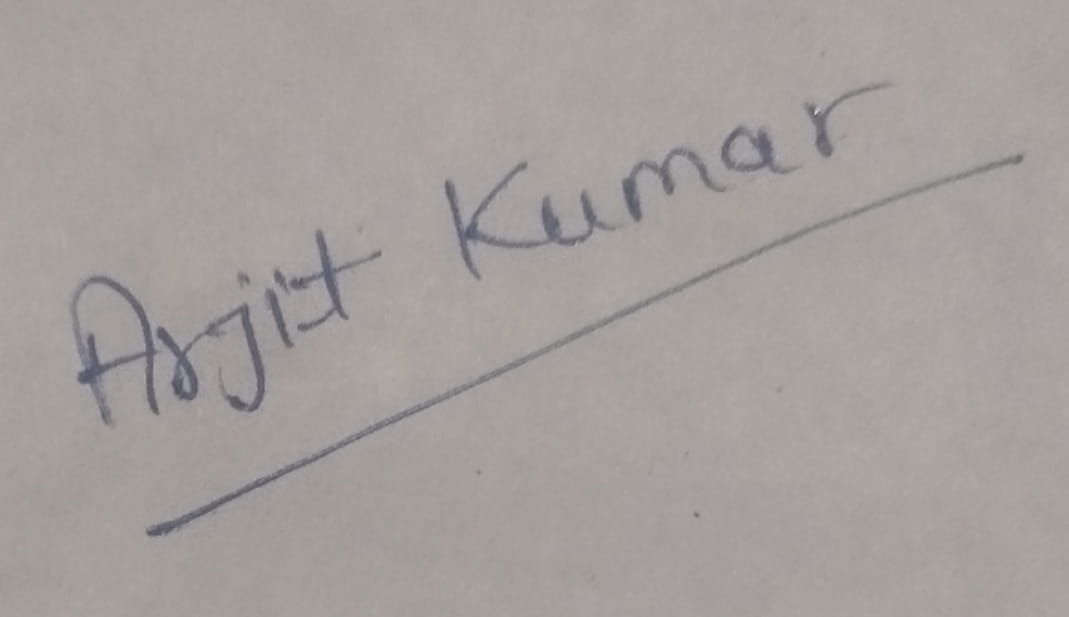 Arjit Kumar